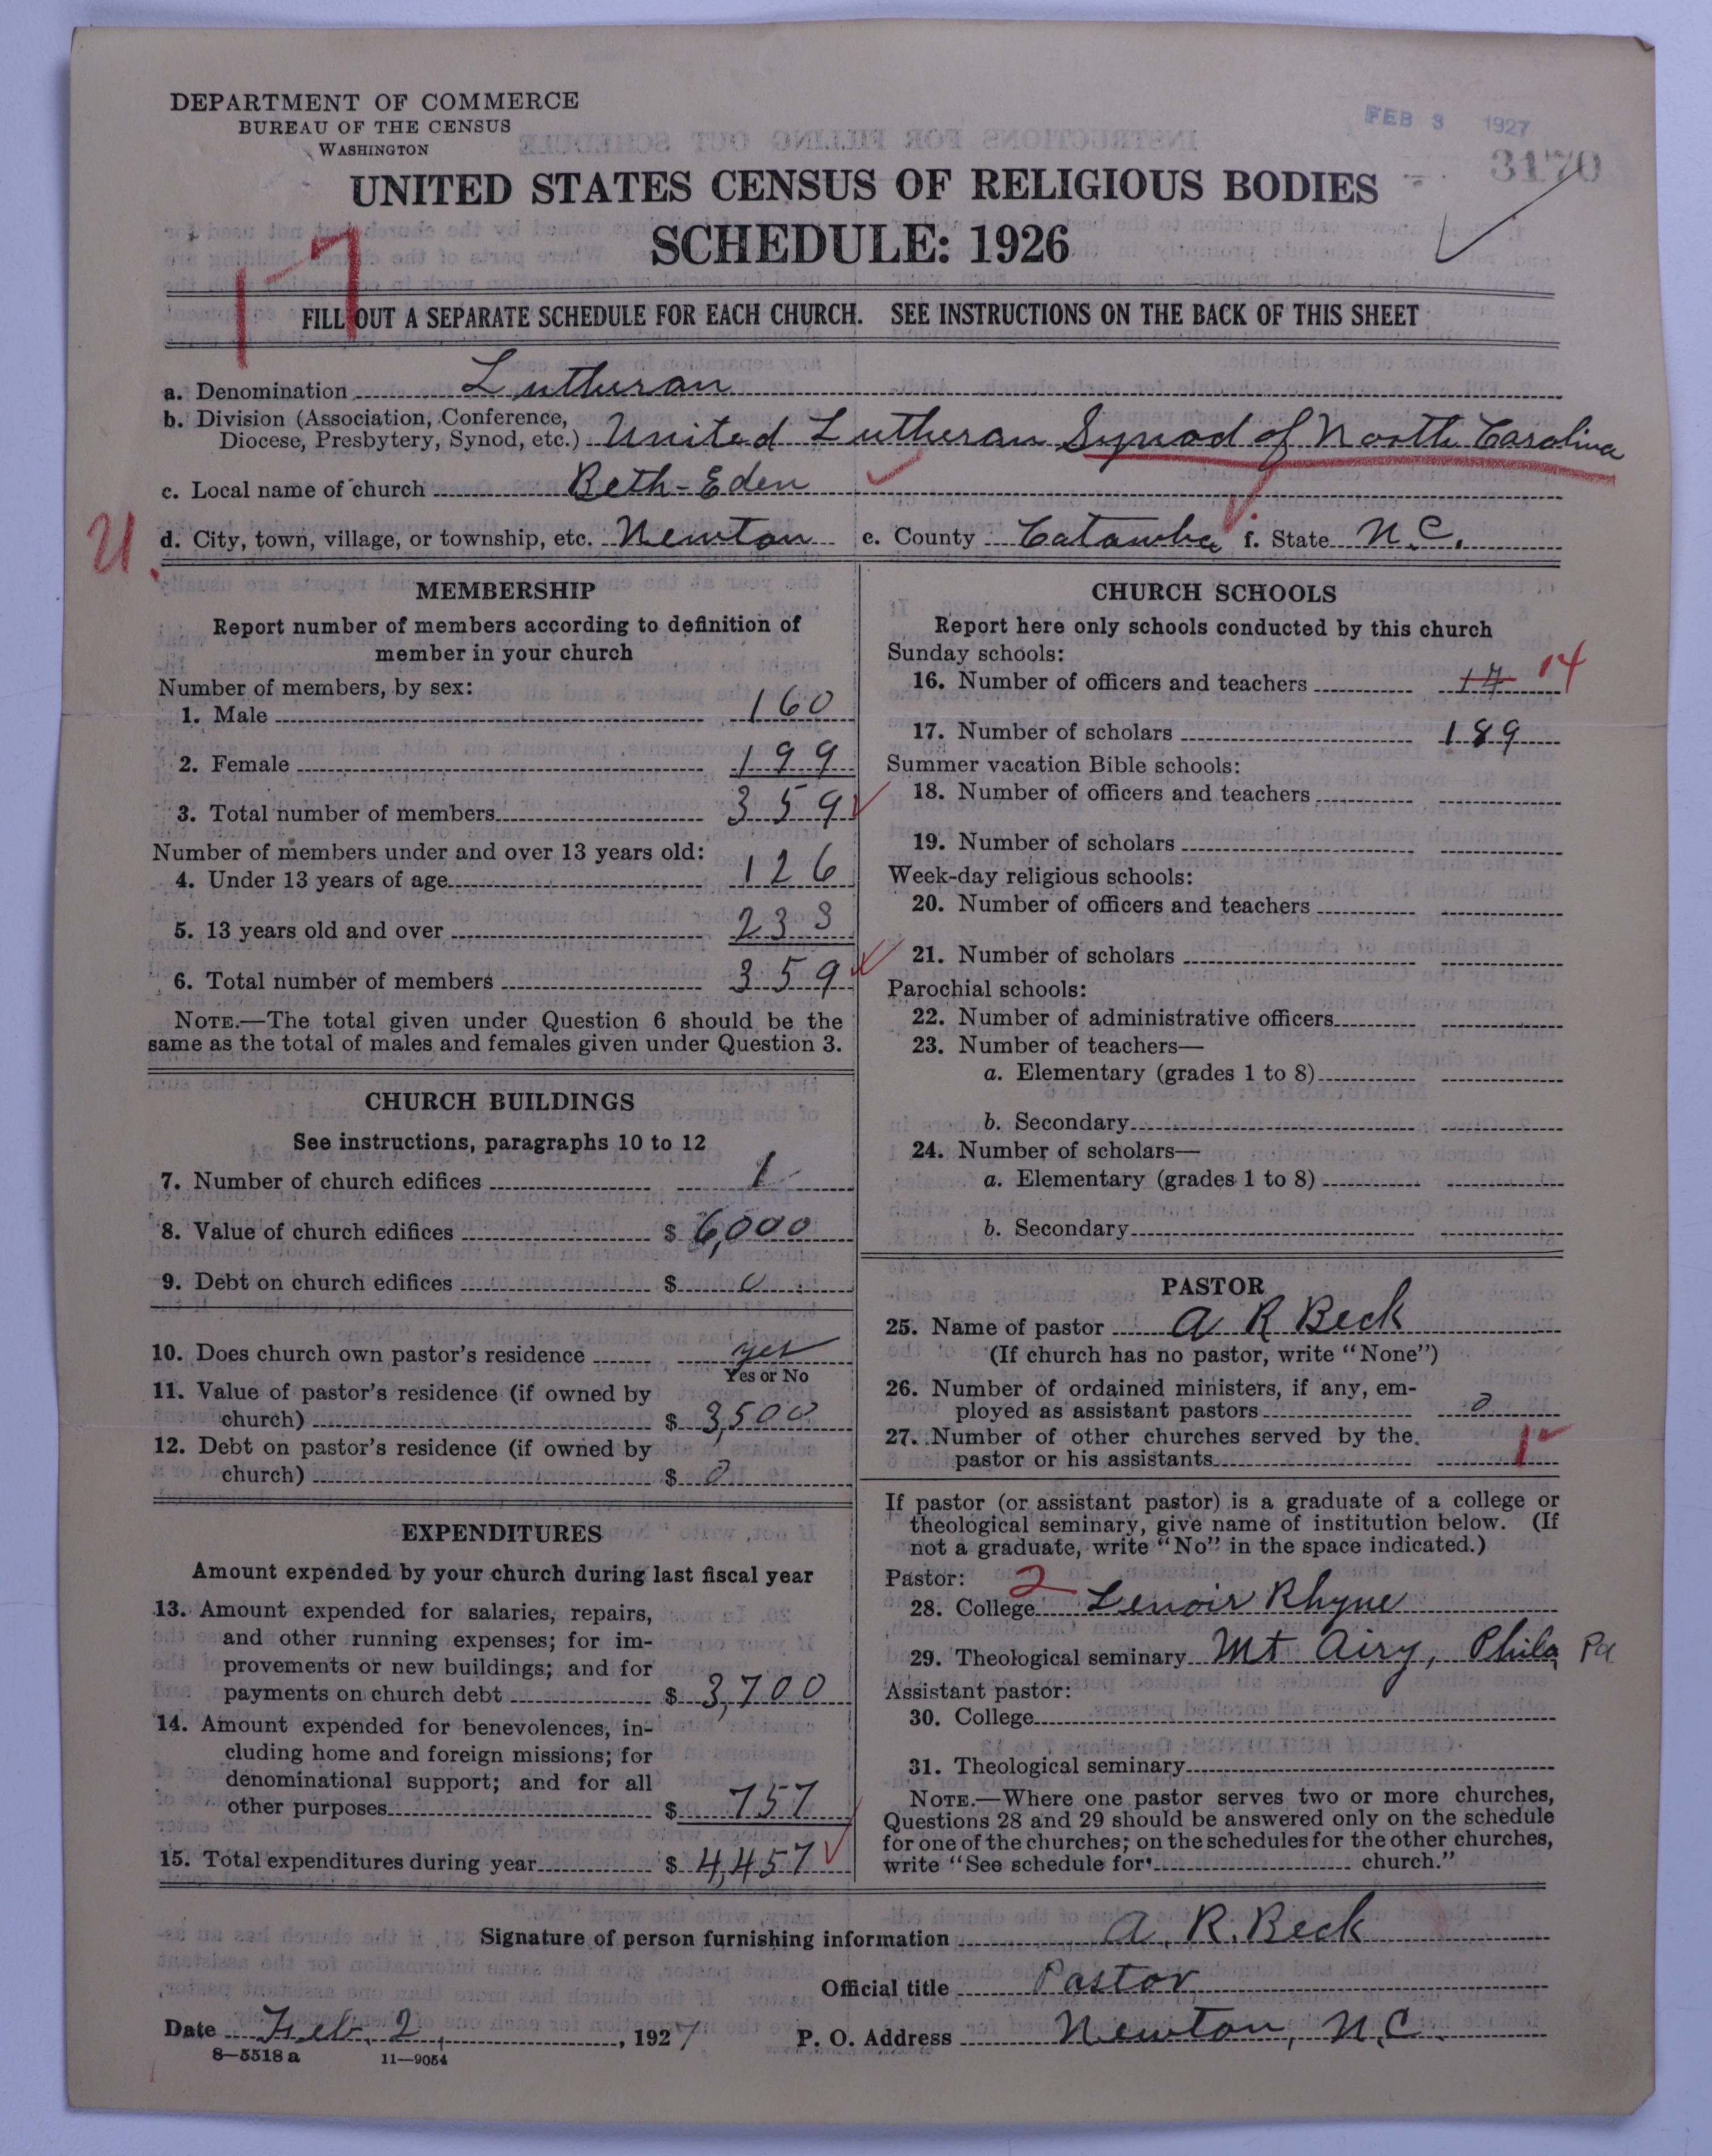 DEPARTMENT OF COMMERCE
BUREAU OF THE CENSUS
WASHINGTON
FEB 3 1927
3170
UNITED STATES CENSUS OF RELIGIOUS BODIES
SCHEDULE: 1926
17
FILL OUT A SEPARATE SCHEDULE FOR EACH CHURCH. SEE INSTRUCTIONS ON THE BACK OF THIS SHEET
a. Denomination Lutheran
b. Division (Association, Conference,
Diocese, Presbytery, Synod, etc.) United Lutheran Synod of North Carolina
c. Local name of church Beth-Eden
U. d. City, town, village, or township, etc. Newton e. County Catawba f. State N.C.
MEMBERSHIP
Report number of members according to definition of
member in your church
Number of members, by sex:
1. Male 160
2. Female 199
3. Total number of members 359
Number of members under and over 13 years old:
4. Under 13 years of age 126
5. 13 years old and over 233
6. Total number of members 359
NOTE.—The total given under Question 6 should be the
same as the total of males and females given under Question 3.
CHURCH BUILDINGS
See instructions, paragraphs 10 to 12
7. Number of church edifices 1
8. Value of church edifices $ 6,000
9. Debt on church edifices $ 0
10. Does church own pastor's residence yes
Yes or No
11. Value of pastor's residence (if owned by
church) $ 3,500
12. Debt on pastor's residence (if owned by
church) $ 0
EXPENDITURES
Amount expended by your church during last fiscal year
13. Amount expended for salaries, repairs,
and other running expenses; for im-
provements or new buildings; and for
payments on church debt $ 3,700
14. Amount expended for benevolences, in-
cluding home and foreign missions; for
denominational support; and for all
other purposes $ 757
15. Total expenditures during year $ 4,457
CHURCH SCHOOLS
Report here only schools conducted by this church
Sunday schools:
16. Number of officers and teachers 14
17. Number of scholars 189
Summer vacation Bible schools:
18. Number of officers and teachers
19. Number of scholars
Week-day religious schools:
20. Number of officers and teachers
21. Number of scholars
Parochial schools:
22. Number of administrative officers
23. Number of teachers—
a. Elementary (grades 1 to 8)
b. Secondary
24. Number of scholars—
a. Elementary (grades 1 to 8)
b. Secondary
PASTOR
25. Name of pastor A R Beck
(If church has no pastor, write "None")
26. Number of ordained ministers, if any, em-
ployed as assistant pastors 0
27. Number of other churches served by the
pastor or his assistants 1
If pastor (or assistant pastor) is a graduate of a college or
theological seminary, give name of institution below. (If
not a graduate, write "No" in the space indicated.)
Pastor: 2
28. College Lenoir Rhyne
29. Theological seminary Mt Airy, Phila Pa
Assistant pastor:
30. College
31. Theological seminary
NOTE.—Where one pastor serves two or more churches,
Questions 28 and 29 should be answered only on the schedule
for one of the churches; on the schedules for the other churches,
write "See schedule for church."
Signature of person furnishing information A. R. Beck
Official title Pastor
Date Feb. 2, 1927 P. O. Address Newton, N.C.
8—5518 a 11—9054